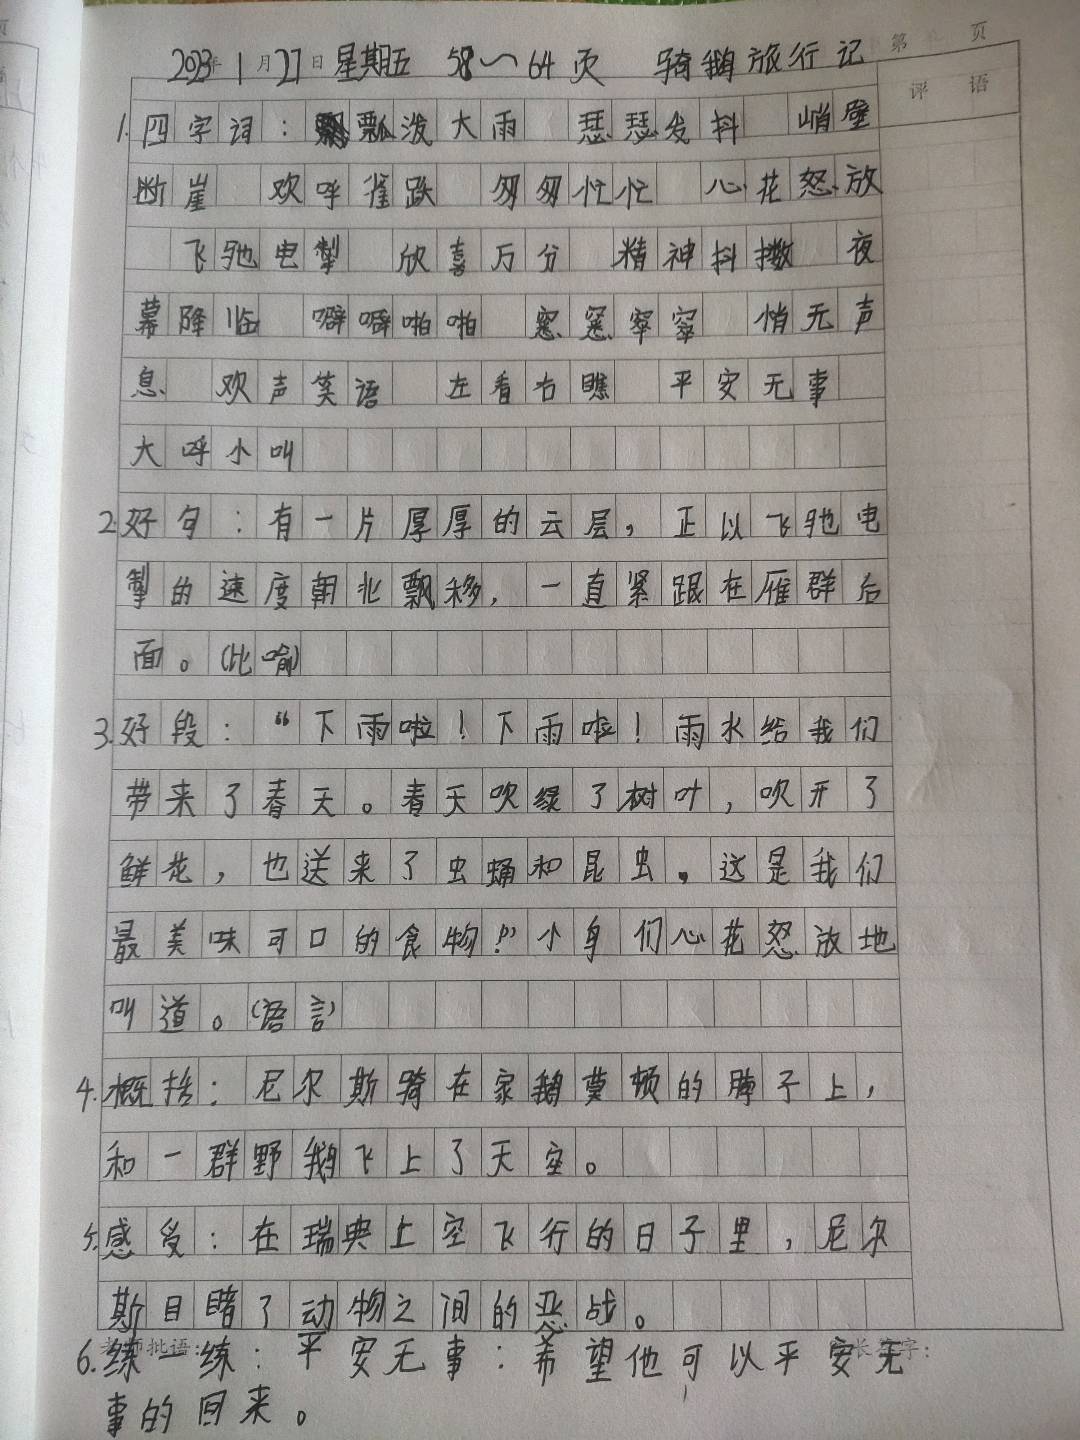 第 页
2023年1月27日 星期五 58～64页 骑鹅旅行记
评 语
1.四字词：瓢泼大雨 瑟瑟发抖 峭壁
断崖 欢呼雀跃 匆匆忙忙 心花怒放
飞驰电掣 欣喜万分 精神抖擞 夜
幕降临 噼噼啪啪 窸窸窣窣 悄无声
息 欢声笑语 左看右瞧 平安无事
大呼小叫
2.好句：有一片厚厚的云层，正以飞驰电
掣的速度朝北飘移，一直紧跟在雁群后
面。（比喻）
3.好段：“下雨啦！下雨啦！雨水给我们
带来了春天。春天吹绿了树叶，吹开了
鲜花，也送来了虫蛹和昆虫。这是我们
最美味可口的食物！”小鸟们心花怒放地
叫道。（语言）
4.概括：尼尔斯骑在家鹅莫顿的脖子上，
和一群野鹅飞上了天空。
5.感受：在瑞典上空飞行的日子里，尼尔
斯目睹了动物之间的恶战。
老师批语： 家长签字：
6.练一练：平安无事：希望他可以平安无
事的回来。